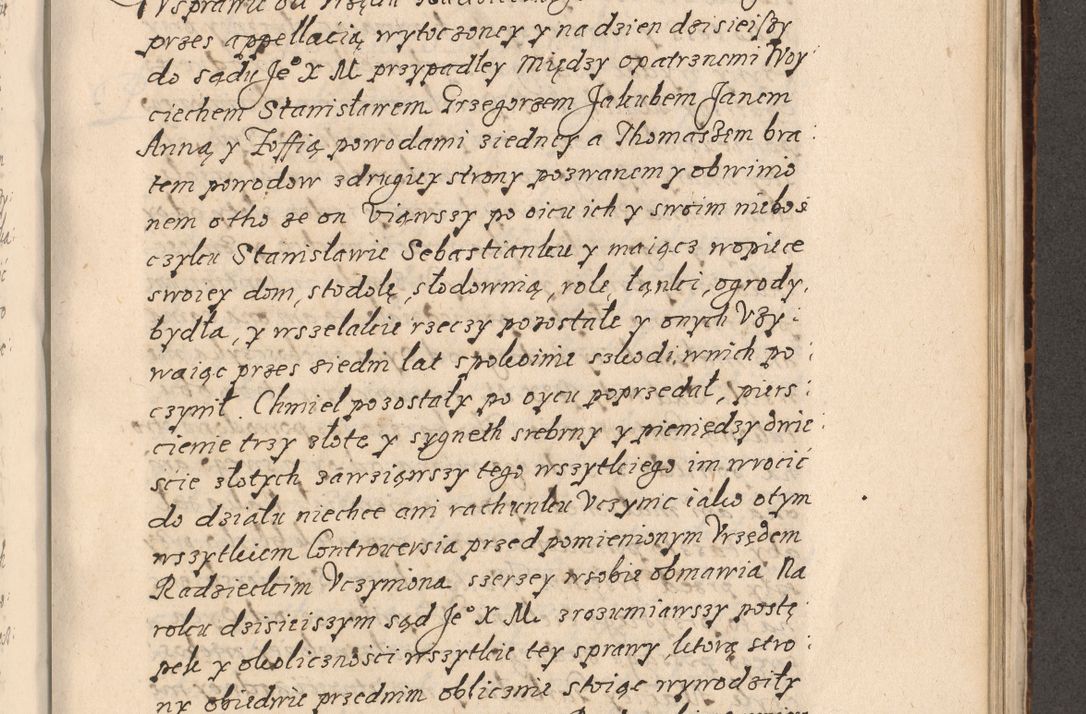 W sprawie od Urzędu Radzieckiego
przes appellacią wytoczoney y na dzien dzisieiszy
do sądu Jeº X M przypadłey między opatrznemi Woy
ciechem Stanisławem Grzegorzem Jakubem Janem
Anną y Zoffią powodami ziedney a Thomaszem bra
tem powodow zdrugiey strony pozwanem y obwinio
nem otho ze on Uiąwszy po oicu ich y swoim niebos
czyku Stanisławie Sebastianku y maiącz wopiece
swoiey dom, stodołę, słodownią, rolę, łąnki, ogrody,
bydła, y wszelakie rzeczy pozostałe y onych Uzy
waiąc przes siedm lat spokoinie szkodi wnich po
czynił. Chmiel pozostały po oycu poprzedał, piers
cienie trzy złote y sygneth srebrny y pieniędzy dwie
scie złotych zawziąwszy tego wszytkiego im wrocić
do działu niechce ani rachunku Uczynic iako otym
wszytkiem Controwersia przed pomienionym Urzędem
Radzieckim Uczyniona szerzey wsobie obmawia Na
roku dzisieiszym sąd Jeº X M zrozumiawszy postę
pek y okoliczności wszytkie tey sprawy, ktorą stro
ny obiedwie przednim oblicznie stoiąc wywodziły